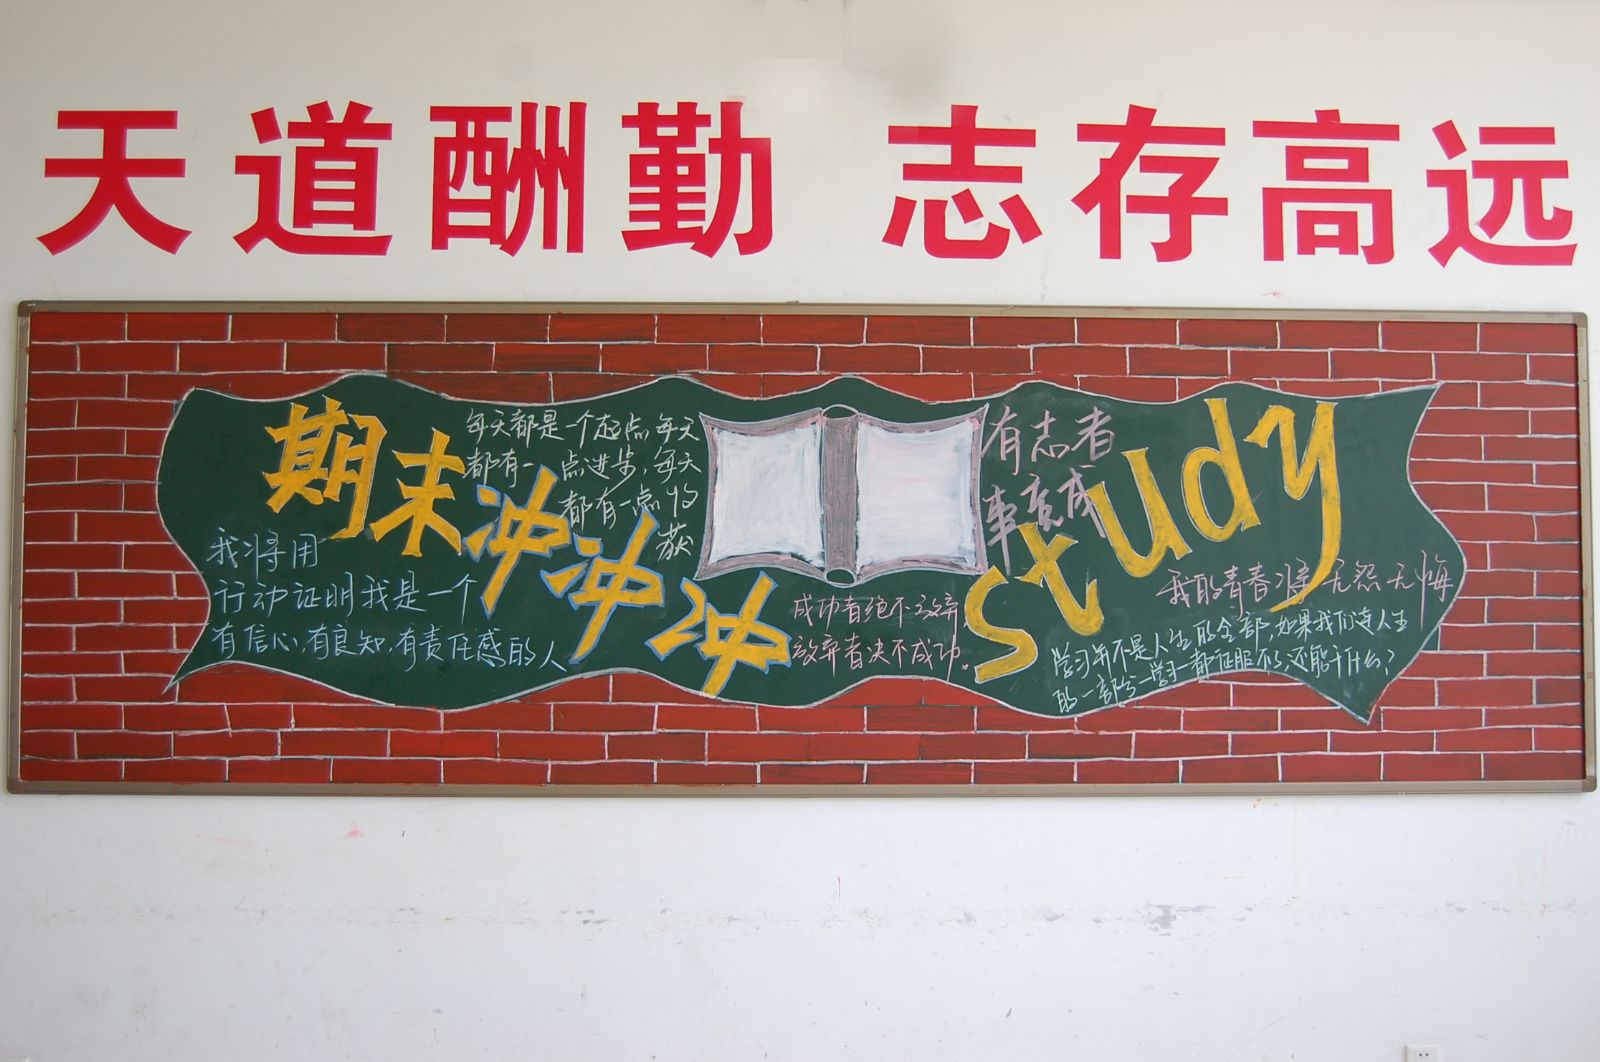 天道酬勤 志存高远
期末冲冲冲
每天都是一个起点每天
都有一点进步,每天
都有一点收
获
我将用
行动证明我是一个
有信心,有良知,有责任感的人
成功者绝不放弃
放弃者决不成功。
有志者
事竟成
study
我的青春将无怨无悔
学习并不是人生的全部,如果我们连人生
的一部分一学习一都征服不了,还能干什么?